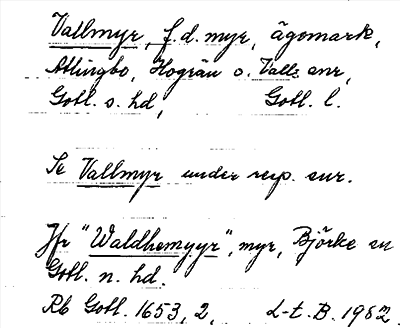 Vallmyr, f.d. myr, ägomark,
Atlingbo, Hogrän o. Valls snr,
Gotl. s. hd, Gotl. l.
Se Vallmyr under resp. snr.
Jfr "Waldhemyyr", myr, Björke sn
Gotl. n. hd.
Rb Gotl. 1653, 2, L-t. B. 1982.